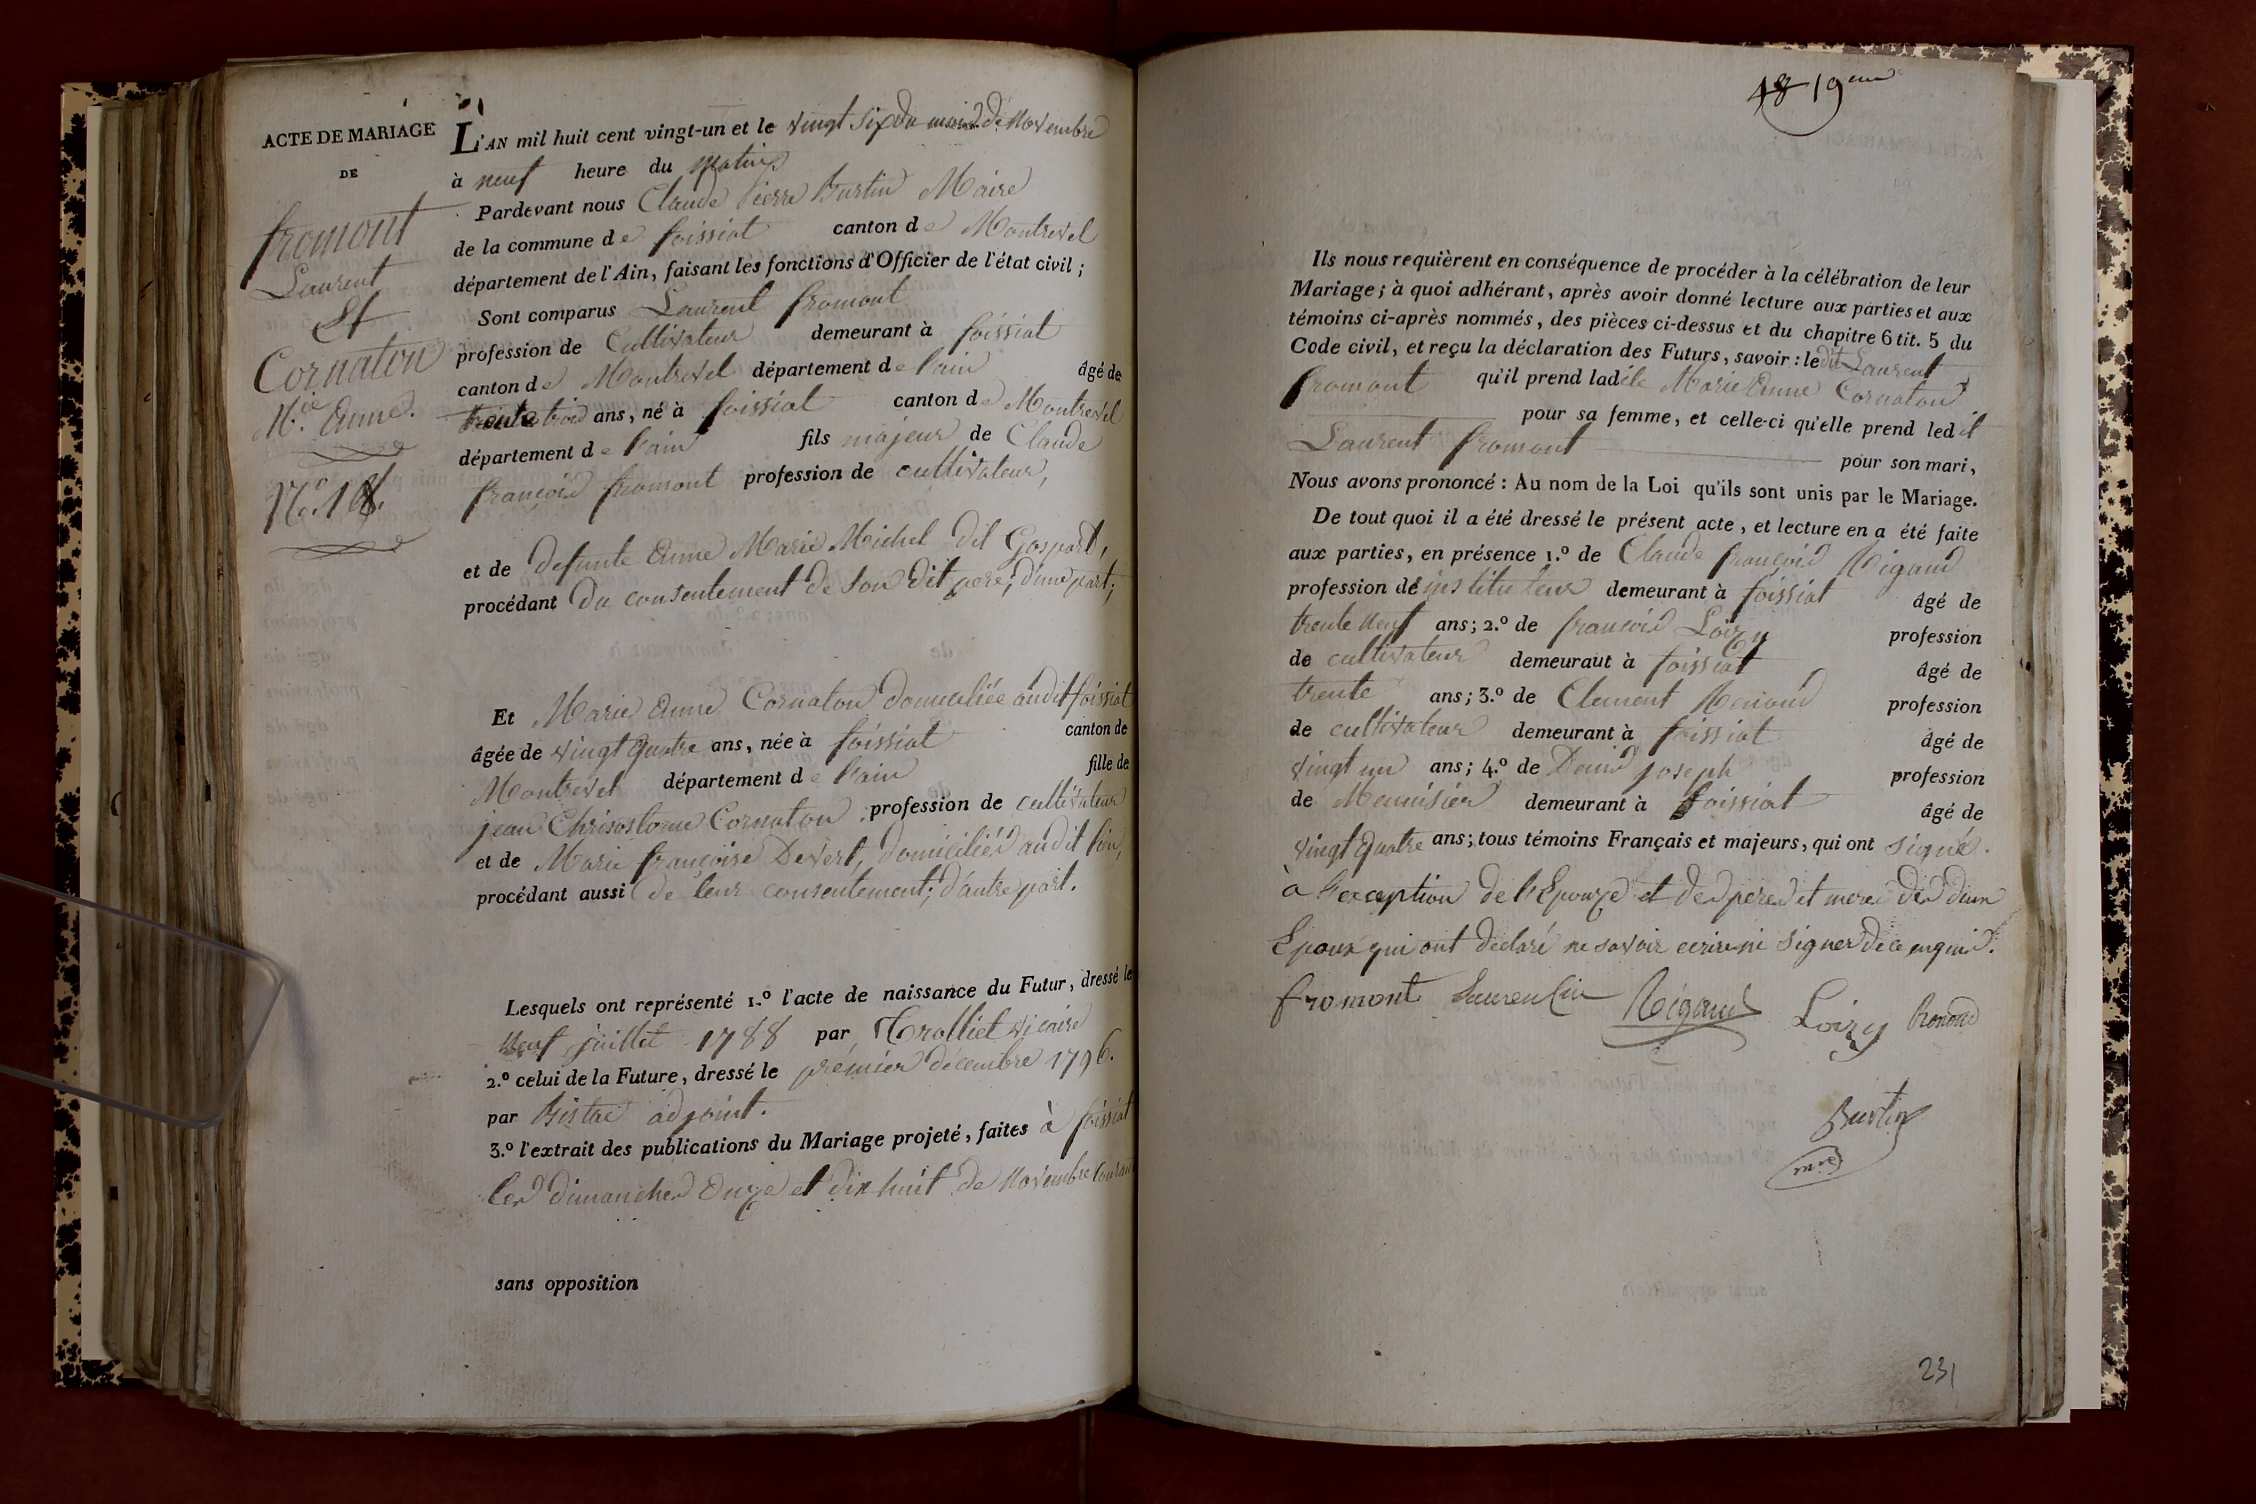 ACTE DE MARIAGE
DE
fromont
Laurent
Et
Cornaton
M.ie Anne.
N.o 18.
L'AN mil huit cent vingt-un et le vingt six du mois de Novembre
à neuf heure du matin
Pardevant nous Claude Pierre Burtin Maire
de la commune de foissiat canton de Montrevel
département de l'Ain, faisant les fonctions d'Officier de l'état civil ;
Sont comparus Laurent fromont
profession de Cultivateur demeurant à foissiat
canton de Montrevel département de l'ain âgé de
trente trois ans, né à foissiat canton de Montrevel
département de l'ain fils majeur de Claude
françois fromont profession de cultivateur,
et de defunte Anne Marie Michel dit Gaspart,
procédant du consentement de son dit pere; d'une part;
Et Marie Anne Cornaton domiciliée audit foissiat
âgée de vingt quatre ans, née à foissiat canton de
Montrevel département de l'ain fille de
jean Chrisostome Cornaton profession de cultivateur
et de Marie françoise Devert, domiciliés audit lieu,
procédant aussi de leur consentement; d'autre part.
Lesquels ont représenté 1.º l'acte de naissance du Futur, dressé le
Neuf juillet 1788 par Trolliet vicaire
2.º celui de la Future, dressé le prémier décembre 1796.
par adjoint.
3.º l'extrait des publications du Mariage projeté, faites à foissiat
les dimanches Onze et dix huit de Novembre courant
sans opposition
18 19eme
Ils nous requièrent en conséquence de procéder à la célébration de leur
Mariage ; à quoi adhérant, après avoir donné lecture aux parties et aux
témoins ci-après nommés, des pièces ci-dessus et du chapitre 6 tit. 5 du
Code civil, et reçu la déclaration des Futurs, savoir : le dit Laurent
fromont qu'il prend ladite Marie Anne Cornaton
pour sa femme, et celle-ci qu'elle prend ledit
Laurent fromont pour son mari,
Nous avons prononcé : Au nom de la Loi qu'ils sont unis par le Mariage.
De tout quoi il a été dressé le présent acte, et lecture en a été faite
aux parties, en présence 1.º de Claude françois Rigaud
profession de instituteur demeurant à foissiat âgé de
trente neuf ans ; 2.º de françois Loizy profession
de cultivateur demeurant à foissiat âgé de
trente ans ; 3.º de Clement Renoud profession
de cultivateur demeurant à foissiat âgé de
vingt un ans ; 4.º de Denis joseph profession
de Menuisier demeurant à foissiat âgé de
vingt quatre ans ; tous témoins Français et majeurs, qui ont signé.
à l'exception de l'Epouze et des peres et mere des deux
Epoux qui ont déclaré ne savoir ecrire ni signer de ce enquis.
fromont Laurentin Rigaud Loizy Renoud
Burtin
mre
231